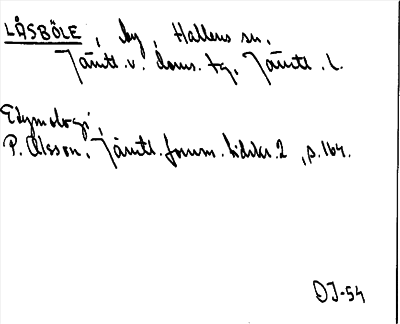 LÅSBÖLE, by, Hallens sn.
Jämtl. v. doms. tg, Jämtl. l.
Etymologi,
P. Olsson, Jämtl. fornm. tidskr. 2, s. 164.
DJ-54